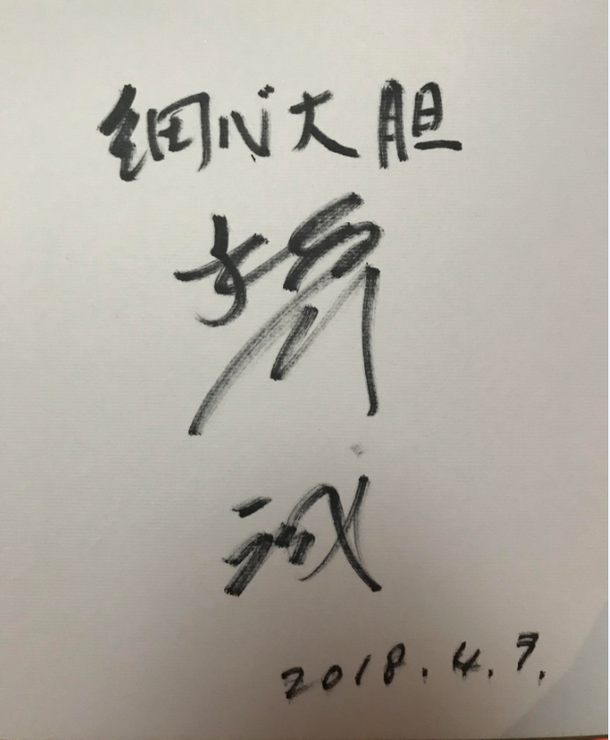 细心大胆
诚
2018.4.7.